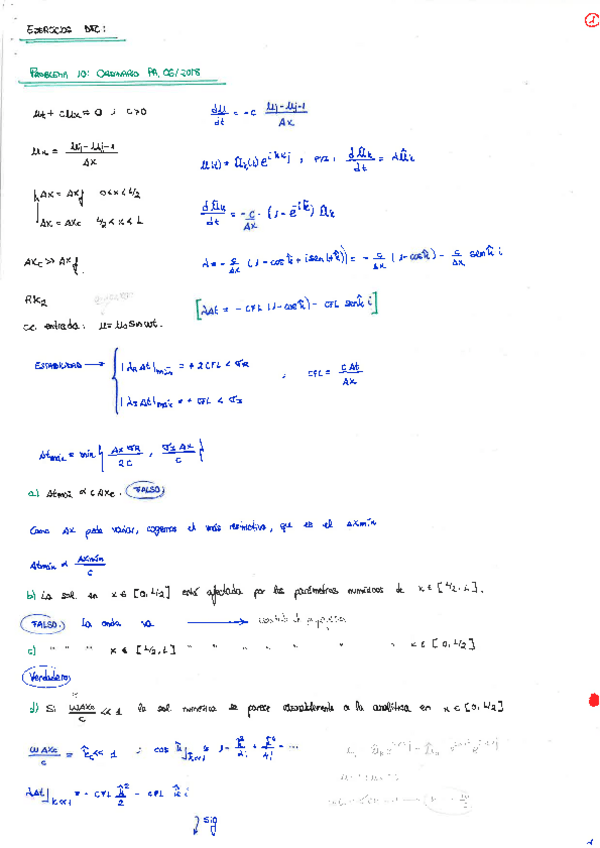 1
EJERCICIOS DFC:
PROBLEMA 10: ORDINARIO PA, 06/2018
ut + cux = 0 ; c>0
duj/dt = -c (uj - uj-1)/Δx
ux = (uj - uj-1)/Δx
dûk/dt = λûk
Δx = Δxf 0<x<L/2
Δx = Δxc L/2<x<L
dûk/dt = -c/Δx · (1-e^-ik̂) ûk
Δxc >> Δxf
λ = -c/Δx (1-cosk̂ + isen(k̂)) = -c/Δx (1-cosk̂) - c/Δx senk̂ i
RK2
[λΔt = -CFL (1-cosk̂) - CFL senk̂ i]
cc entrada: u = u0 sin ωt.
ESTABILIDAD → |λR Δt|máx = +2CFL < σR ; CFL = cΔt/Δx
|λI Δt|máx = + CFL < σI
Δtmáx = min { Δx σR/2c , σI Δx/c }
a) Δtmáx ∝ cΔxc. FALSO.
Como Δx puede variar, cogemos el más restrictivo, que es el Δxmín
Δtmín ∝ Δxmín/c
b) La sol. en x ∈ [0, L/2] está afectada por los parámetros numéricos de x ∈ [L/2, L].
FALSO. La onda va →
c) " " " x ∈ [L/2, L] " " " " " " x ∈ [0, L/2]
Verdadero
d) Si ωΔxc/c << 1 la sol numérica se parece razonablemente a la analítica en x ∈ [0, L/2]
ωΔxc/c = k̂c << 1 ; cos k̂|k̂<<1 ≈ 1 - k̂²/2! + k̂⁴/4! - ...
λΔt|k<<1 = -CFL k̂²/2 - CFL k̂ i
↓ sig